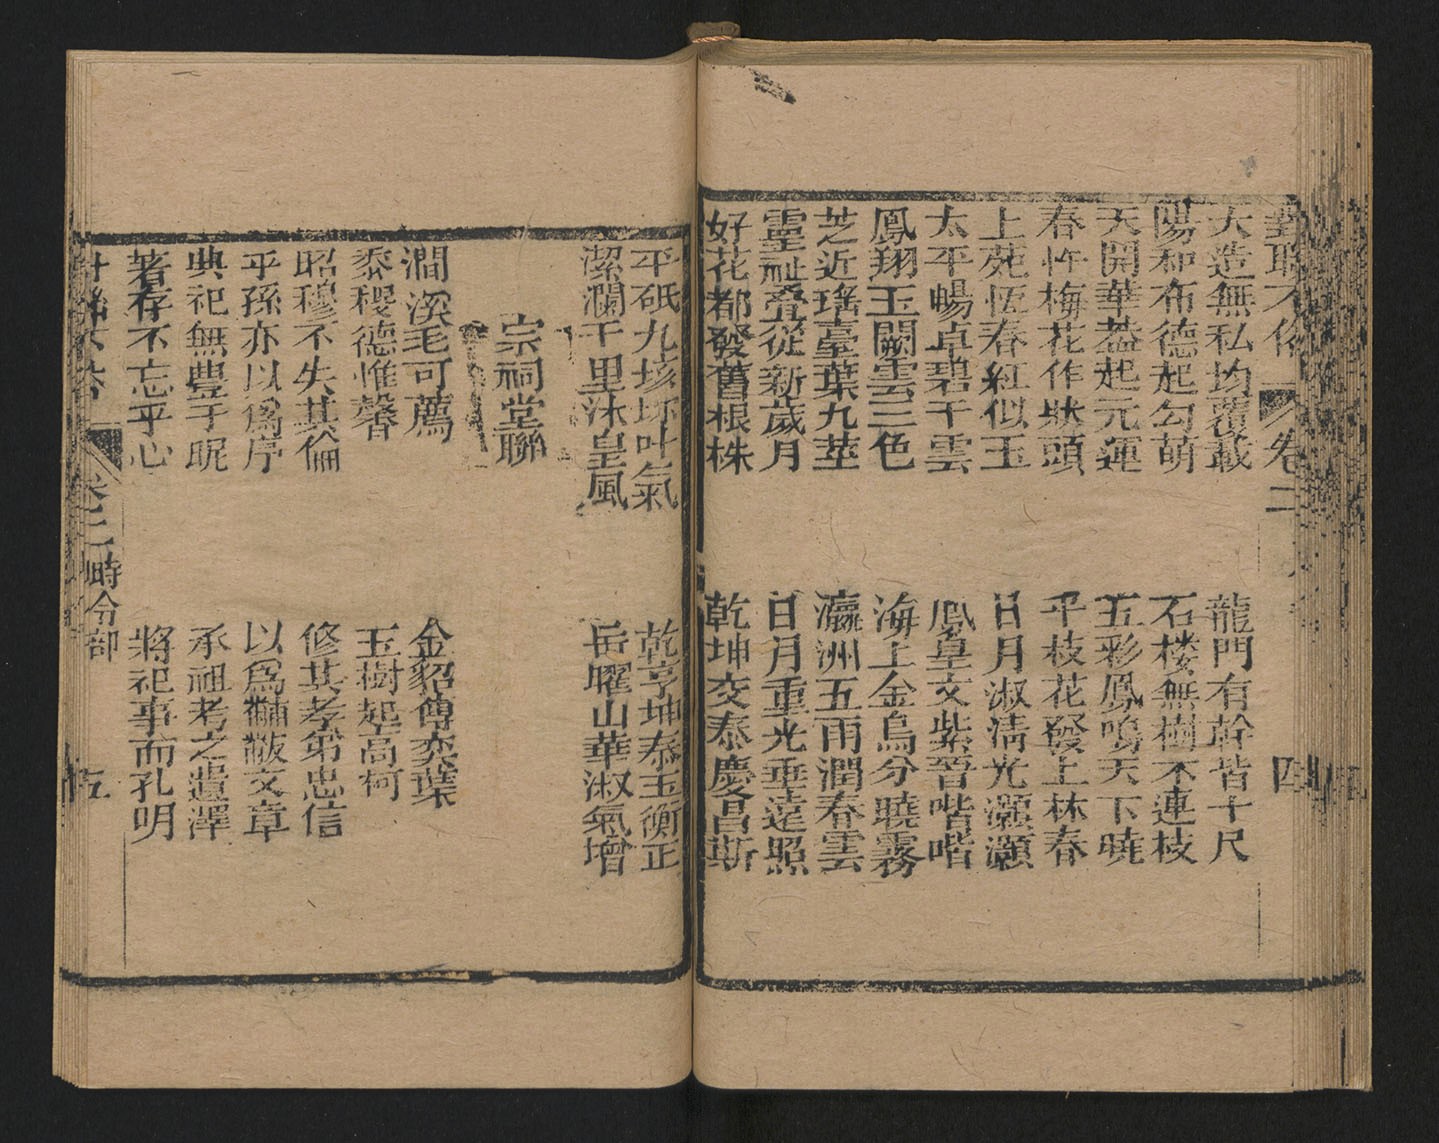 對聯不俗 卷二 四
大造無私均覆載 龍門有幹皆千尺
陽和布德起勾萌 石楼無樹不連枝
天開華葢起元運 五彩鳳鳴天下曉
春忤梅花作狀頭 平枝花發上林春
上苑恆春紅似玉 日月淑清光灝灝
太平暢卓碧干雲 鳳皇文紫晉喈喈
鳳翔玉闕雲三色 海上金烏分曉霧
芝近瑤臺葉九莖 瀛洲五雨潤春雲
靈祉疊從新歲月 日月重光垂遠照
好花都發舊根株 乾坤交泰慶昌斯
平砥九垓坏叶氣 乾亨坤泰玉衡正
潔瀾千里沐皇風 岳曜山華淑氣增
宗祠堂聯
澗溪毛可薦 金貂傳奕葉
黍稷德惟馨 玉樹起高柯
昭穆不失其倫 修其孝弟忠信
乎孫亦以爲序 以爲黼黻文章
典祀無豊于昵 承祖考之遺澤
著存不忘乎心 將祀事而孔明
卷二 時令部 五